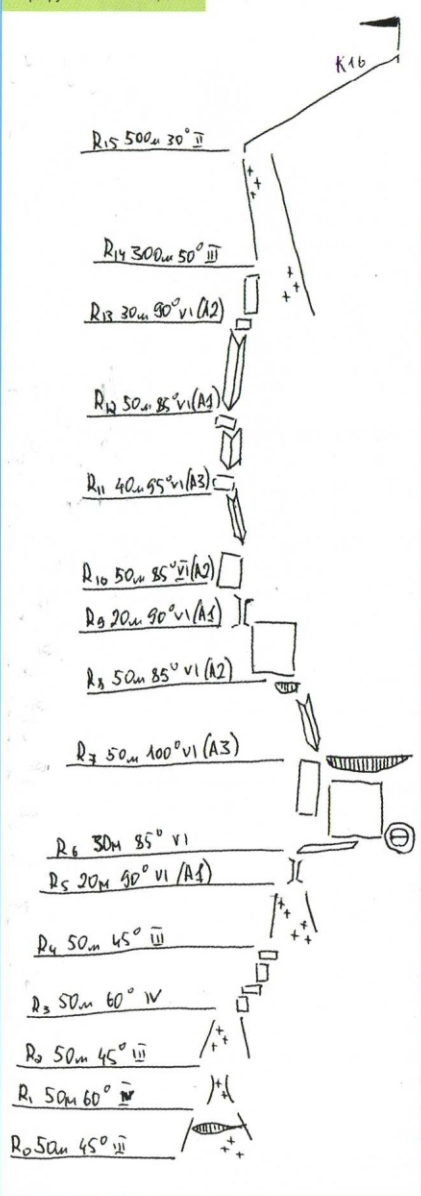 K16
R15 500м 30° II
R14 300м 50° III
R13 30м 90° VI (A2)
R12 50м 85° VI (A1)
R11 40м 95° VI (A3)
R10 50м 85° VI (A2)
R9 20м 90° VI (A1)
R8 50м 85° VI (A2)
R7 50м 100° VI (A3)
R6 30м 85° VI
R5 20м 90° VI (A1)
R4 50м 45° III
R3 50м 60° IV
R2 50м 45° III
R1 50м 60° IV
R0 50м 45° III